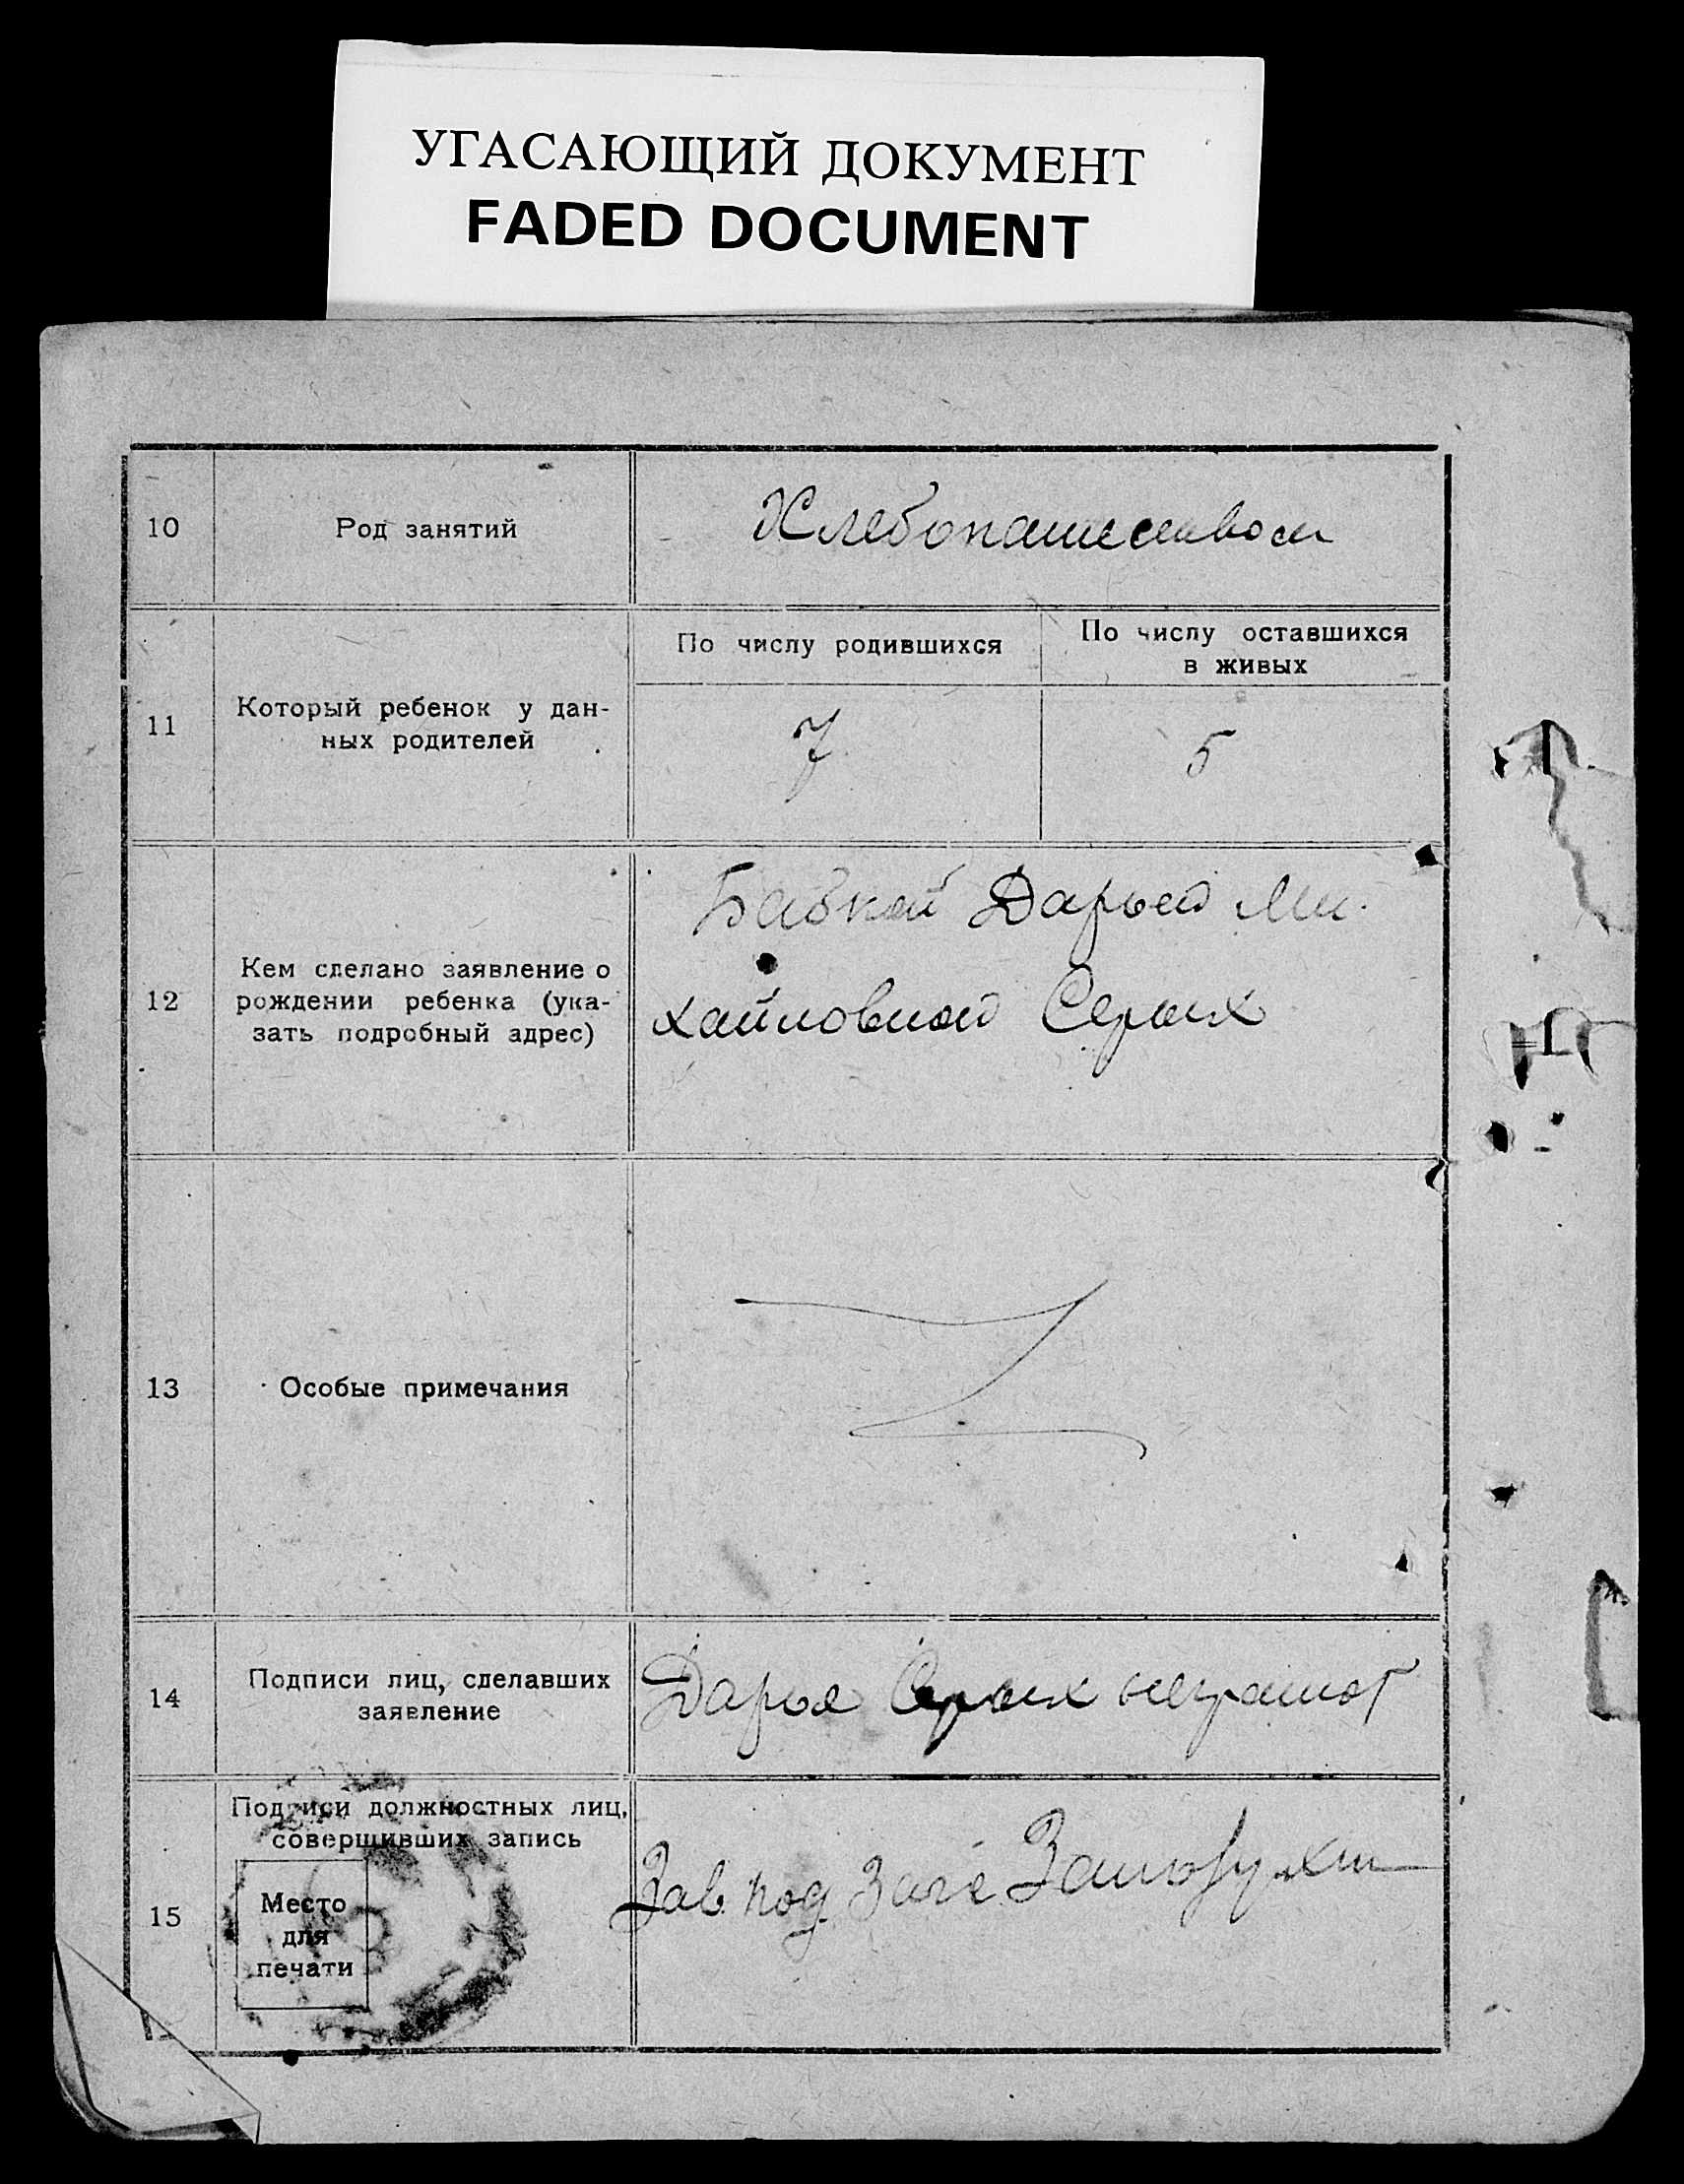 УГАСАЮЩИЙ ДОКУМЕНТ
FADED DOCUMENT
10
Род занятий
Хлебопашеством
11
Который ребенок у дан-
ных родителей
По числу родившихся
По числу оставшихся
в живых
7
5
12
Кем сделано заявление о
рождении ребенка (ука-
зать подробный адрес)
Бабкой Дарьей Ми-
хайловной Серых
13
Особые примечания
14
Подписи лиц, сделавших
заявление
Дарья Серых неграмот
15
Подписи должностных лиц,
совершивших запись
Место
для
печати
Зав. под